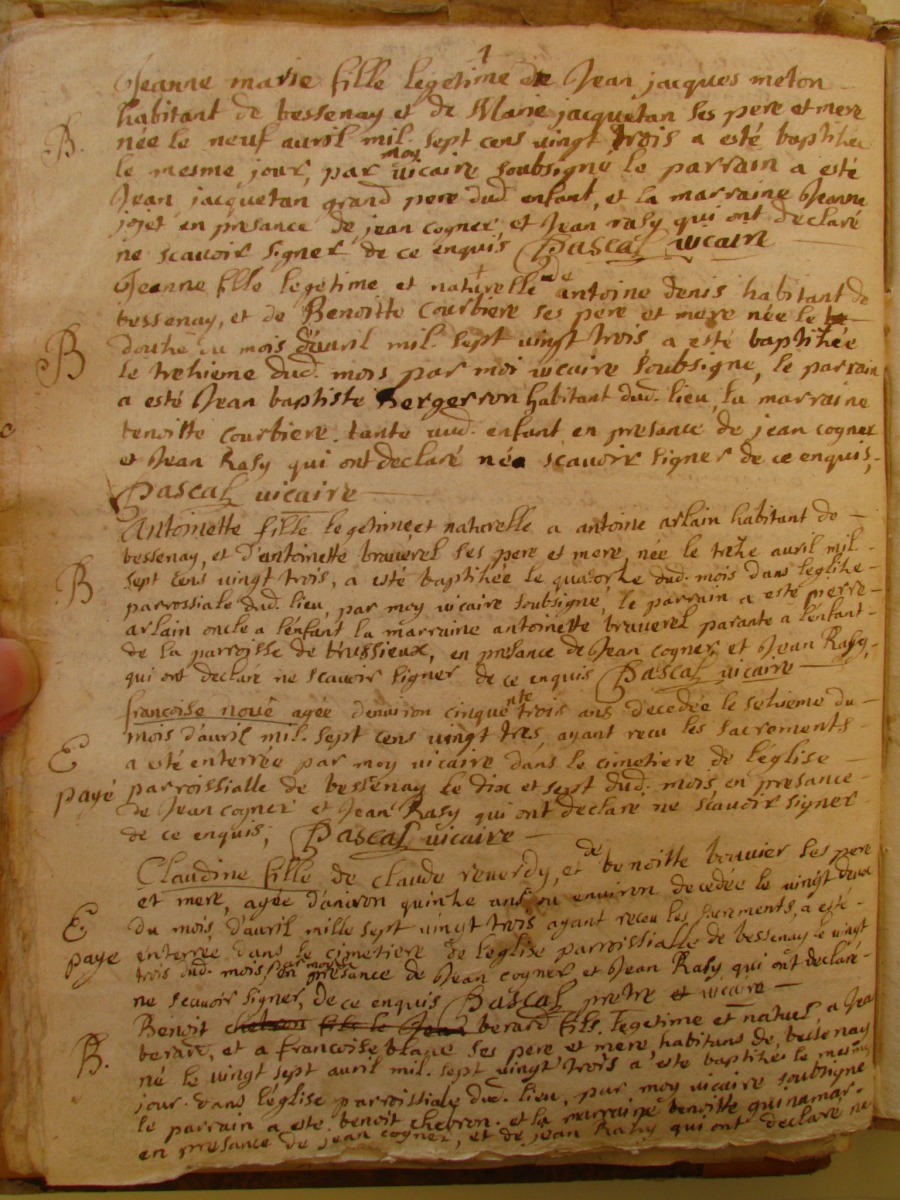 1
Jeanne marie fille legetime de Jean jacques meton
habitant de bessenay et de Marie jacquetan ses pere et mere
B. née le neuf auril mil. sept cens vingt trois a esté baptihée
le mesme jour, par moy vicaire soubsigne le parrain a esté
Jean jacquetan grand pere dud. enfant, et la marraine Jeanne
jojet en presance de jean cogner, et Jean rasy qui ont declaré
ne scauoir signer de ce enquis Pascal vicaire
Jeanne fille legetime et naturelle de antoine denis habitant de
bessenay, et de Benoitte courbiere ses pere et mere née le
B douhe du mois d'auril mil. sept vingt trois a esté baptihée
le trehieme dud. mois par moi vicaire soubsigne, le parrain
a esté Jean baptiste Bergerron habitant dud. lieu, la marraine
benoitte courbiere. tante aud. enfant en presance de jean cogner
et Jean Rasy qui ont declaré scauoir signer de ce enquis,
Pascal uicaire
Antoinette fille legetime, et naturelle a antoine arlain habitant de
bessenay, et d'antoinette brauerel ses pere et mere, née le trehe auril mil.
B sept cens vingt trois, a esté baptihée le quatorhe dud. mois dans leglihe
parrossiale dud. lieu, par moy vicaire soubsigne, le parrain a esté pierre
arlain oncle a l'enfant la marraine antoinette brauerel parante a l'enfant
de la parroisse de brussieux, en presance de Jean cogner, et Jean Rasy,
qui ont declaré ne scauoir signer de ce enquis Pascal uicaire
francoise noué agée denuiron cinquente trois ans decedée le sehieme du
mois d'auril mil. sept cens vingt tres, ayant recu les sacrements
E a esté enterrée par moy vicaire dans le cimetiere de l'église
payé parroissialle de bessenay le dix et sept dud. mois, en presance
de Jean cogner et Jean Rasy qui ont declare ne scauoir signer
de ce enquis, Pascal uicaire
Claudine fille de claude reuerdy, et de benoitte bouuier ses pere
et mere, agée d'anuiron quinhe ans ou enuiron decedée le vingt deux
E du mois d'auril mille sept vingt trois ayant receu les sacrements, a esté
paye enterrée dans le cimetiere de l'église parroissialle de bessenay le vingt
trois dud. mois par moy en presance de Jean cogner et Jean Rasy qui ont declaré
ne scauoir signer, de ce enquis Pascal pretre et uicaire
Benoit berard fils. legetime et natuel, a Jean
berard, et a francoise blanc ses pere, et mere, habitans de, bessenay
B. né le vingt sept auril mil. sept vingt trois a esté baptihés le mesme
jour. dans l'église parroissiale dud. lieu, par moy vicaire soubsigne
le parrain a este benoit chebron. et la marraine benoitte guinamar.
en presance de jean cogner, et de jean Rasy qui ont declare ne